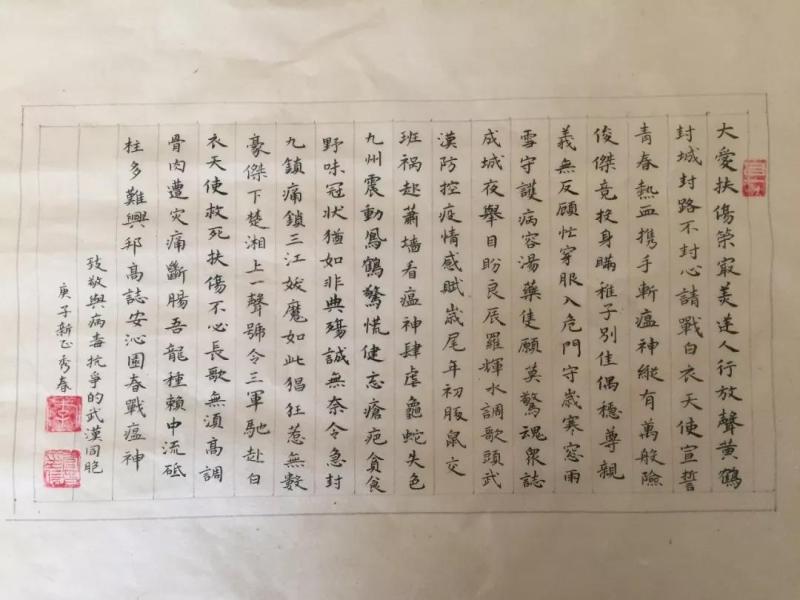 大愛扶傷榮最美逆人行放聲黄鶴
封城封路不封心請戰白衣天使宣誓
青春熱血携手斬瘟神縱有萬般險
俊傑竞投身瞞稚子別佳偶穩尊親
義無反顧忙穿服入危門守歲寒窓雨
雪守護病容湯藥隻願莫驚魂衆誌
成城夜舉目盼良辰羅輝水調歌頭武
漢防控疫情感賦歲尾年初豚鼠交
班祸起蕭墻看瘟神肆虐龜蛇失色
九州震動鳳鶴驚慌健忘瘡疤貪食
野味冠状猶如非典殤誠無奈令急封
九鎖痛鎖三江妖魔如此猖狂惹無数
豪傑下楚湘上一聲號令三軍馳赴白
衣天使救死扶傷不心長歌無湏高調
骨肉遭灾痛斷腸吾龍種賴中流砥
柱多難興邦高誌安沁園春戰瘟神
致敬與病毒抗爭的武漢同胞
庚子新正秀春